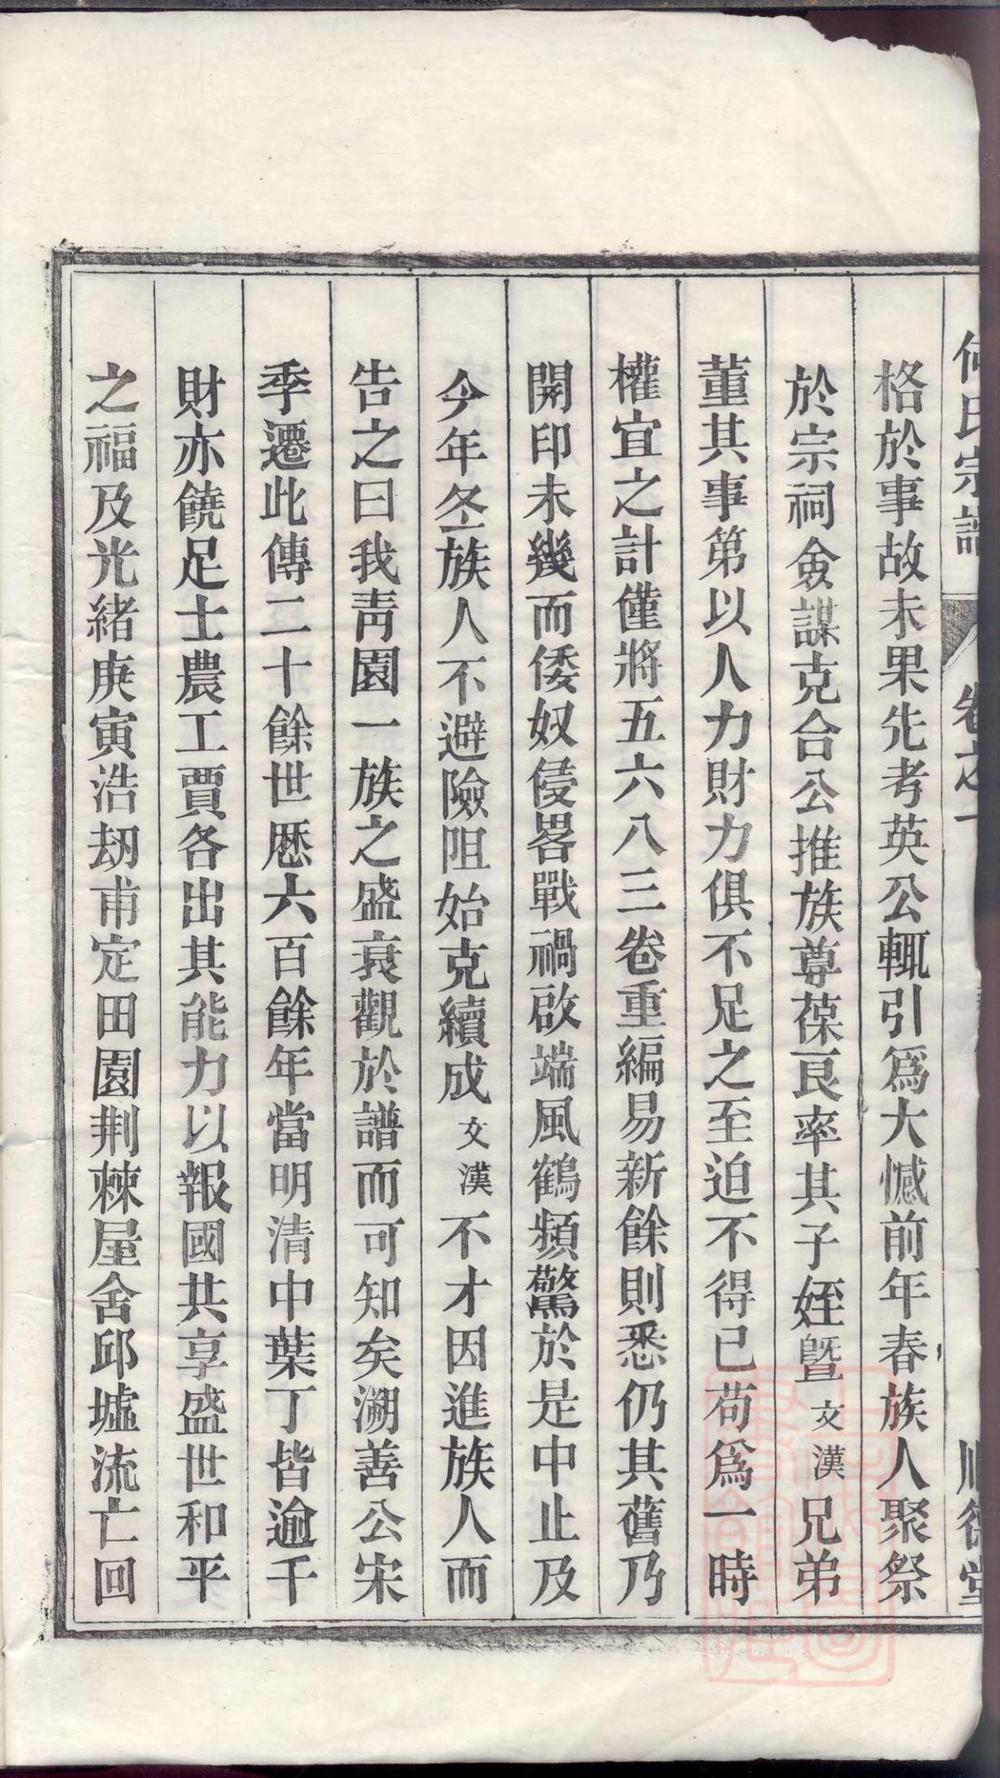 何氏宗譜 卷之一 順德堂
格於事故未果先考英公輒引爲大憾前年春族人聚祭
於宗祠僉謀克合公推族尊葆艮率其子姪曁文漢兄弟
董其事第以人力財力俱不足之至迫不得已苟爲一時
權宜之計僅將五六八三卷重編易新餘則悉仍其舊乃
開印未幾而倭奴侵畧戰禍啟端風鶴頻驚於是中止及
今年冬族人不避險阻始克續成文漢不才因進族人而
告之曰我靑園一族之盛衰觀於譜而可知矣溯善公宋
季遷此傳二十餘世歷六百餘年當明清中葉丁皆逾千
財亦饒足士農工賈各出其能力以報國共享盛世和平
之福及光緒庚寅浩刼甫定田園荆棘屋舍邱墟流亡回